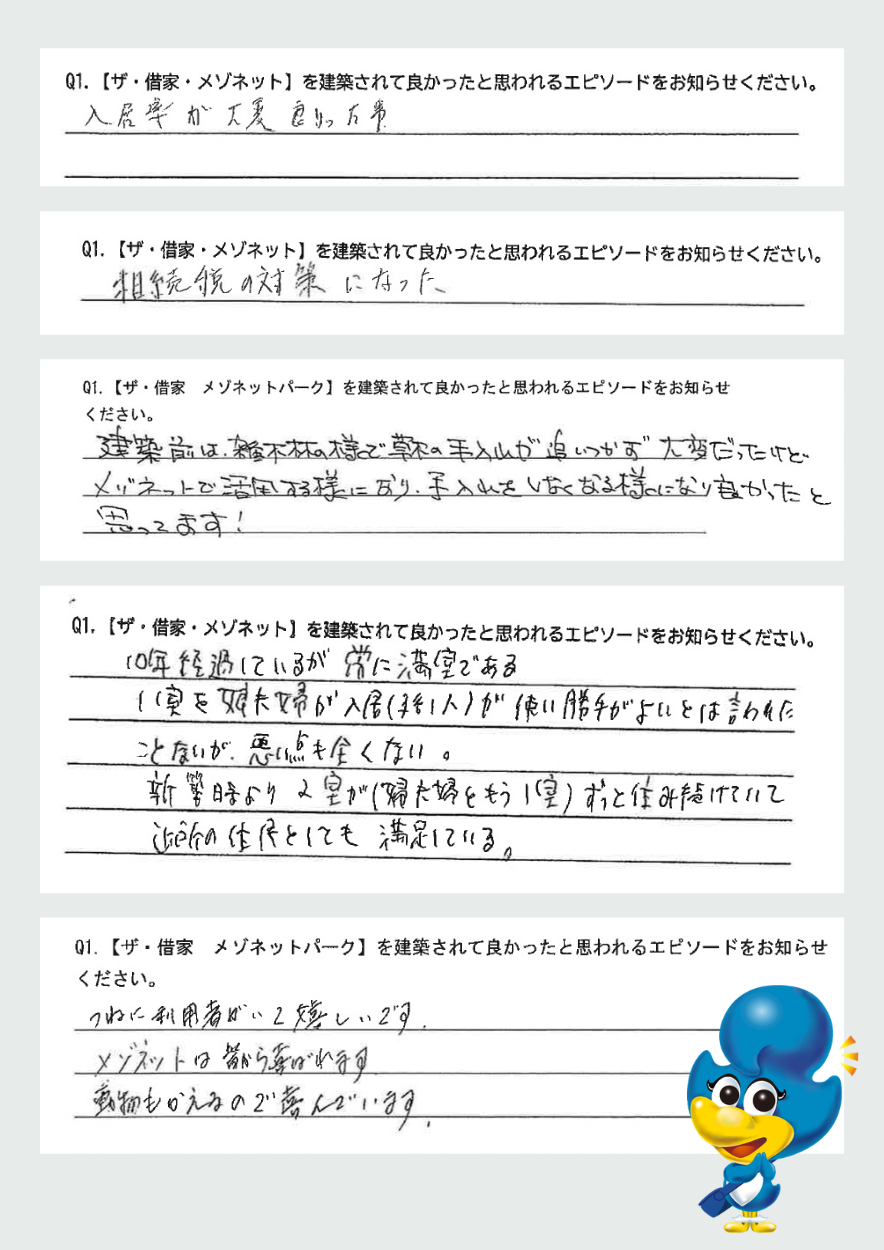 Q1.【ザ・借家・メゾネット】を建築されて良かったと思われるエピソードをお知らせください。
入居率が大変良かった事
Q1.【ザ・借家・メゾネット】を建築されて良かったと思われるエピソードをお知らせください。
相続税の対策になった
Q1.【ザ・借家　メゾネットパーク】を建築されて良かったと思われるエピソードをお知らせ
ください。
建築前は、雑木林の様で草木の手入れが追いつかず大変だったけど、
メゾネットで活用する様になり、手入れをしなくなる様になり良かったと
思ってます!
Q1.【ザ・借家・メゾネット】を建築されて良かったと思われるエピソードをお知らせください。
10年経過しているが常に満室である
1室を娘夫婦が入居(孫1人)が使い勝手がよいとは言われた
ことないが、悪い点も全くない。
新築時より2室が(娘夫婦ともう1室)ずっと住み続けていて
近所の住民としても満足している。
Q1.【ザ・借家　メゾネットパーク】を建築されて良かったと思われるエピソードをお知らせ
ください。
つねに利用者がいて嬉しいです.
メゾネットは皆から喜ばれます
動物もかえるので喜んでいます.